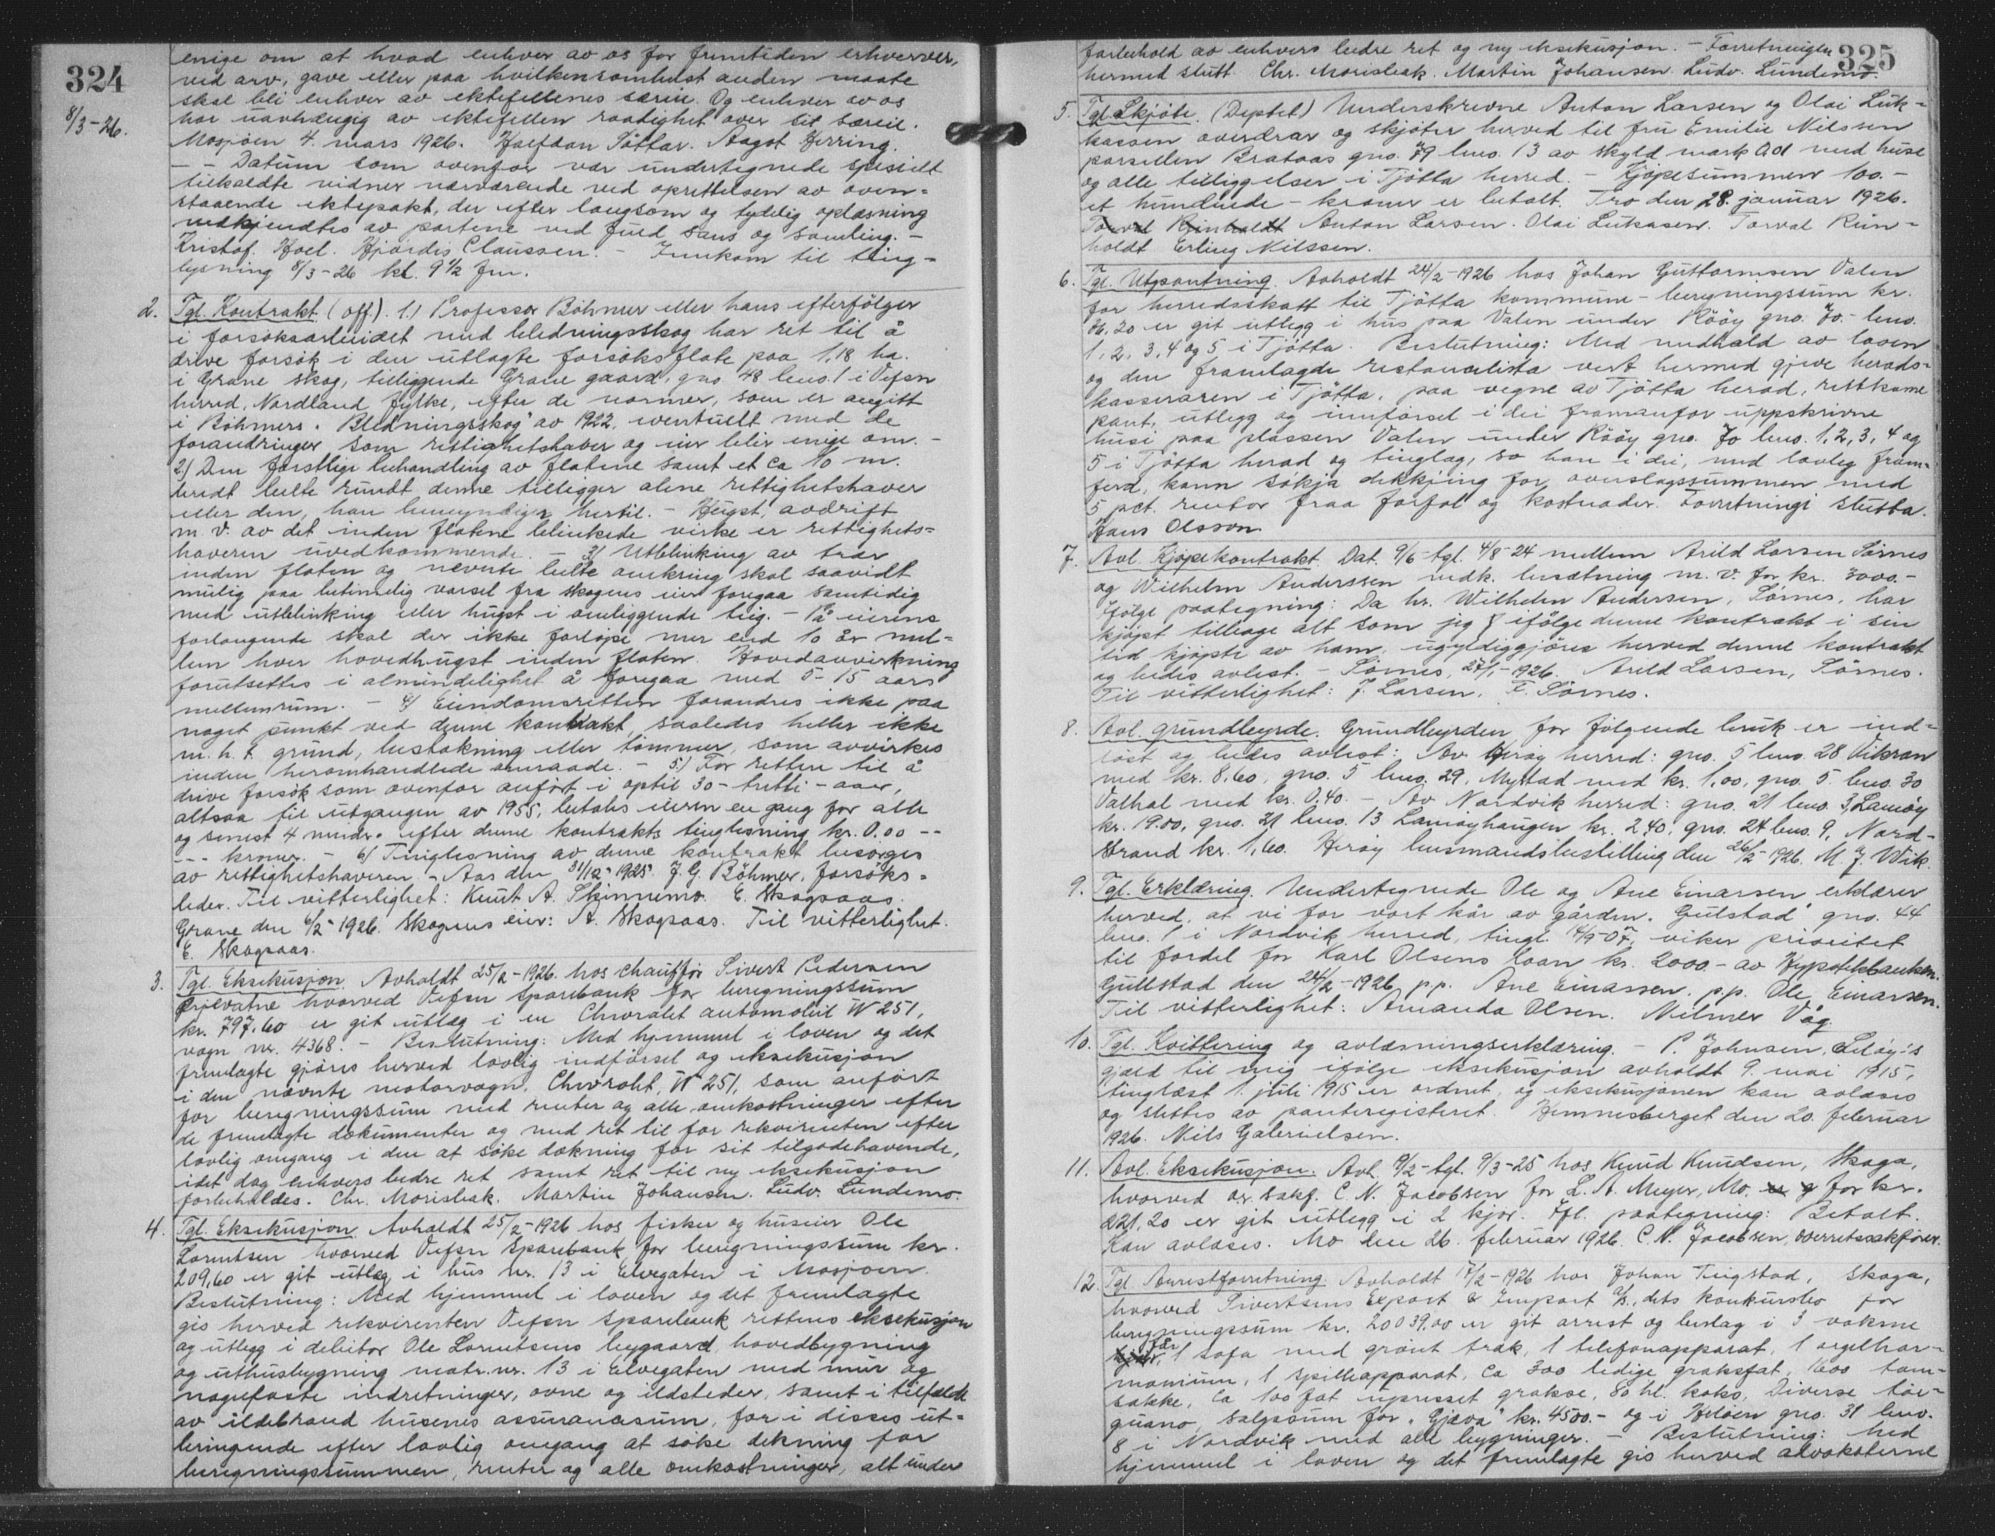 324
8/3-26.
enige om at hvad enhver av os for fremtiden erhverver,
ved arv, gave eller paa hvilkensomhelst anden maate
skal bli enhver av ektefellenes særeie. Og enhver av os
har uavhængig av ektefellen raadighet over sit særeie.
Mosjøen 4. mars 1926. Halfdan Sóttar. Aagot Herring.
- - Datum som ovenfor var undertegnede specielt
tilkaldte vidner nærværende ved oprettelsen av oven=
staaende ektepakt, der efter langsom og tydelig oplæsning
vedkjendtes av partene ved fuld sans og samling. -
Kristof. Hoel. Hjørdis Claussen. - Innkom til ting-
lysning 8/3-26 kl. 9 1/2 fm.
2. Tgl. Kontrakt (off.). 1.) Professor Böhmer eller hans efterfölger
i forsöksarbeidet med bledningsskog har ret til å
drive forsök i den utlagte forsöksflate paa 1,18 ha.
i Grane skog, tilliggende Grane gaard, gno. 48 bno. 1 i Vefsn
herred, Nordland fylke, efter de normer, som er angitt
i Böhmers "Bledningsskog" av 1922, eventuelt med de
forandringer som rettighetshaver og eier blir enige om. -
2) Den forstlige behandling av flatene samt et ca 10 m.
bredt belte rundt denne tilligger alene rettighetshaver
eller den, han bemyndiger hertil. - Hugst, avdrift
m. v. av det inden flatene blinkede virke er rettighets=
haveren uvedkommende. - 3) Utblinking av trær
inden flaten og nevnte belte omkring skal saavidt
mulig paa betimelig varsel fra skogens eier foregaa samtidig
med utblinking eller hugst i omliggende teig. - På eierens
forlangende skal der ikke forløpe mer end 10 år mel=
lem hver hovedhugst inden flaten. Hovedavvirkning
forutsettes i almindelighet å foregaa med 5-15 aars
mellemrum. - 4) Eiendomsretten forandres ikke paa
noget punkt ved denne kontrakt saaledes heller ikke
m. h. t. grund, bestokning eller tömmer, som avvirkes
inden heromhandlede omraade. - 5) For retten til å
drive forsök som ovenfor anfört i optil 30 - tretti - aar,
altsaa til utgangen av 1955, betales eieren en gang for alle
og senest 4 mndr. efter denne kontrakts tinglesning kr. 0,00 --
--- kroner. - 6) Tinglesning av denne kontrakt besörges
av rettighetshaveren. - Aas den 31/12-1925. J. G. Böhmer, forsöks=
leder. Til vitterlighet: Knut A. Skinnemo. E. Skogsaas.
Grane den 6/2-1926. Skogens eier: A. Skogsaas. Til vitterlighet.
E. Skogsaas.
3. Tgl. Eksekusjon. Avholdt 25/2-1926 hos chauffør Sivert Pedersen
hvorved Vefsn Sparebank for beregningssum
kr. 797,60 er git utlæg i en Chevrolet automobil W 251,
vogn nr. 4368. - Beslutning: Med hjemmel i loven og det
fremlagte gjøres herved lovlig indförsel og eksekusjon
i den nævnte motorvogn, Chevrolet, W 251, som anført
for beregningssum med renter og alle omkostninger efter
de fremlagte dokumenter og med ret til for rekvirenten efter
lovlig omgang i den at söke dekning for sit tilgodehavende,
idet dog enhvers bedre ret samt ret til ny eksekusjon
forbeholdes. Chr. Morisbak. Martin Johansen. Ludv. Lundemo.
4. Tgl. Eksekusjon. Avholdt 25/2-1926 hos fisker og huseier Ole
Lorentsen hvorved Vefsn Sparebank for beregningssum kr.
209,60 er git utlæg i hus nr. 13 i Elvegaten i Mosjøen.
Beslutning: Med hjemmel i loven og det fremlagte
gis herved rekvirenten Vefsn Sparebank rettens eksekusjon
og utlegg i debitor Ole Lorentsens bygaard, hovedbygning
og uthusbygning matr. nr. 13 i Elvegaten med mur og
nagelfaste indretninger, ovne og ildsteder, samt i tilfelde
av ildebrand husenes assuransesum, for i disses ut-
bringende efter lovlig omgang at söke dekning for
beregningssummen, renter og alle omkostninger, alt under
325
forbehold av enhvers bedre ret og ny eksekusjon. - Forretningen
hermed slutt. Chr. Morisbak. Martin Johansen. Ludv. Lundemo.
5. Tgl. Skjöte. (Deptet) Underskrevne Anton Larsen og Olai Luk-
kassen overdrar og skjöter herved til fru Emilie Nilssen
parsellen Brataas gno. 79 bno. 13 av skyld mark 0,01 med huse
og alle tilliggelser i Tjötta herred. - Kjøpesummen 100.-
et hundrede - kroner er betalt. Tro den 28. januar 1926.
Torval Reinholdt Anton Larsen. Olai Lukasen. Torval Rein-
holdt Erling Nilssen.
6. Tgl. Utpantning. Avholdt 24/2-1926 hos Johan Guttormsen Valen
for herredsskatt til Tjötta kommune - beregningssum kr.
86,20 er git utlegg i hus paa Valen under Rööy gno. 70.- bno.
1, 2, 3, 4 og 5 i Tjötta. Beslutning: Med medhald av loven
og den framlagde restanselista vert hermed gjeve herads-
kasseraren i Tjötta, paa vegne av Tjötta herad, rettkome
pant, utlegg og innförsel i dei framanfor uppskrivne
husi paa plassen Valen under Rööy gno. 70 bno. 1, 2, 3, 4 og
5 i Tjötta herad og tinglag, so han i dei, med lovleg fram-
ferd, kann sökja dekkjing for overslagssummen med
5 pct. rentor fraa forfal og kostnader. Forretningi slutta.
Hans Olsson.
7. Avl. Kjöpekontrakt. Dat. 9/6- tgl. 4/8-24 mellem Arild Larsen Sörnes
og Wilhelm Anderssen vedk. besætning m. v. for kr. 3000.-
Ifölge paategning: Da hr. Wilhelm Andersen, Sörnes, har
kjöpt tilbage alt som jeg ifölge denne kontrakt i sin
tid kjöpte av ham, ugyldiggjöres herved denne kontrakt
og bedes avlest. - Sörnes, 27/1-1926. Arild Larsen, Sörnes.
Til vitterlighet: J. Larsen. F. Sörnes.
8. Avl. grundbyrde. Grundbyrden for fölgende bruk er ind-
löst og bedes avlest: Av Heröy herred: gno. 5 bno. 28 Vikran
med kr. 8,60, gno. 5 bno. 29, Mystad med kr. 1,00, gno. 5 bno. 30
Valhal med kr. 0,40. - Av Nordvik herred: gno. 21 bno. 3, Lamöy
kr. 19.00, gno. 21 bno. 13 Lamöyhaugen kr. 2,40, gno. 24 bno. 9, Nord-
strand kr. 1,60. Heröy lensmandsbestilling den 26/2-1926. M. J. Wik.
9. Tgl. Erklæring. Undertegnede Ole og Ane Einarsen erklærer
herved, at vi for vort kår av gården "Gulstad" gno. 44
bno. 1 i Nordvik herred, tingl. 4/9-07, viker prioritet
til fordel for Karl Olsens laan kr. 2000.- av Hypotekbanken.
Gullstad den 24/2-1926. p.p. Ane Einarssen. p.p. Ole Einarsen.
Til vitterlighet: Amanda Olsen. Nilmer Våg.
10. Tgl. Kvittering og avlæsningserklæring. - P. Johnsen, Leløy's
gjæld til mig ifölge eksekusjon avholdt 9. mai 1915,
tinglæst 1. juli 1915 er ordnet, og eksekusjonen kan avlæses
og slettes av panteregisteret. Hemnesberget den 20. februar
1926. Nils Gabrielsen.
11. Avl. Eksekusjon. Avh. 9/2- tgl. 9/3-25 hos Knud Knudsen, Skaga,
hvorved or. sakf. C. N. Jacobsen for L. A. Meyer, Mo, for kr.
221,20 er git utlegg i 2 kjör. Ifl. paategning: Betalt.
Kan avlæses. Mo den 26. februar 1926. C. N. Jacobsen, overretssakförer.
12. Tgl. Arrestforretning. Avholdt 17/2-1926 hos Johan Tingstad, Skaga,
hvorved Sivertsens Export & Import A/S., dets konkursbo for
beregningssum kr. 20039.00 er git arrest og beslag i 3 voksne
får, 1 sofa med grönt trak, 1 telefonapparat, 1 orgelhar-
monium, 1 spilleapparat, ca 300 ledige graksfat, 1600 tom-
sække, ca 100 fat upresset grakse, 80 hl. koks. Diverse tör-
guano, salgssum for "Gjæva" kr. 4500.- og i Heløen gno. 31 bno.
8 i Nordvik med alle bygninger. - Beslutning: Med
hjemmel i loven og det fremlagte gis herved advokaterne